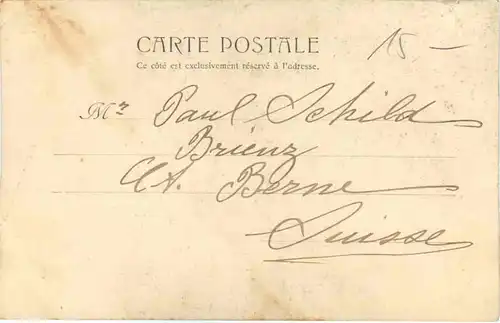 CARTE POSTALE
Ce côté est exclusivement réservé à l'adresse.
15 —
Mr Paul Schild
Brienz
Ct. Berne
Suisse